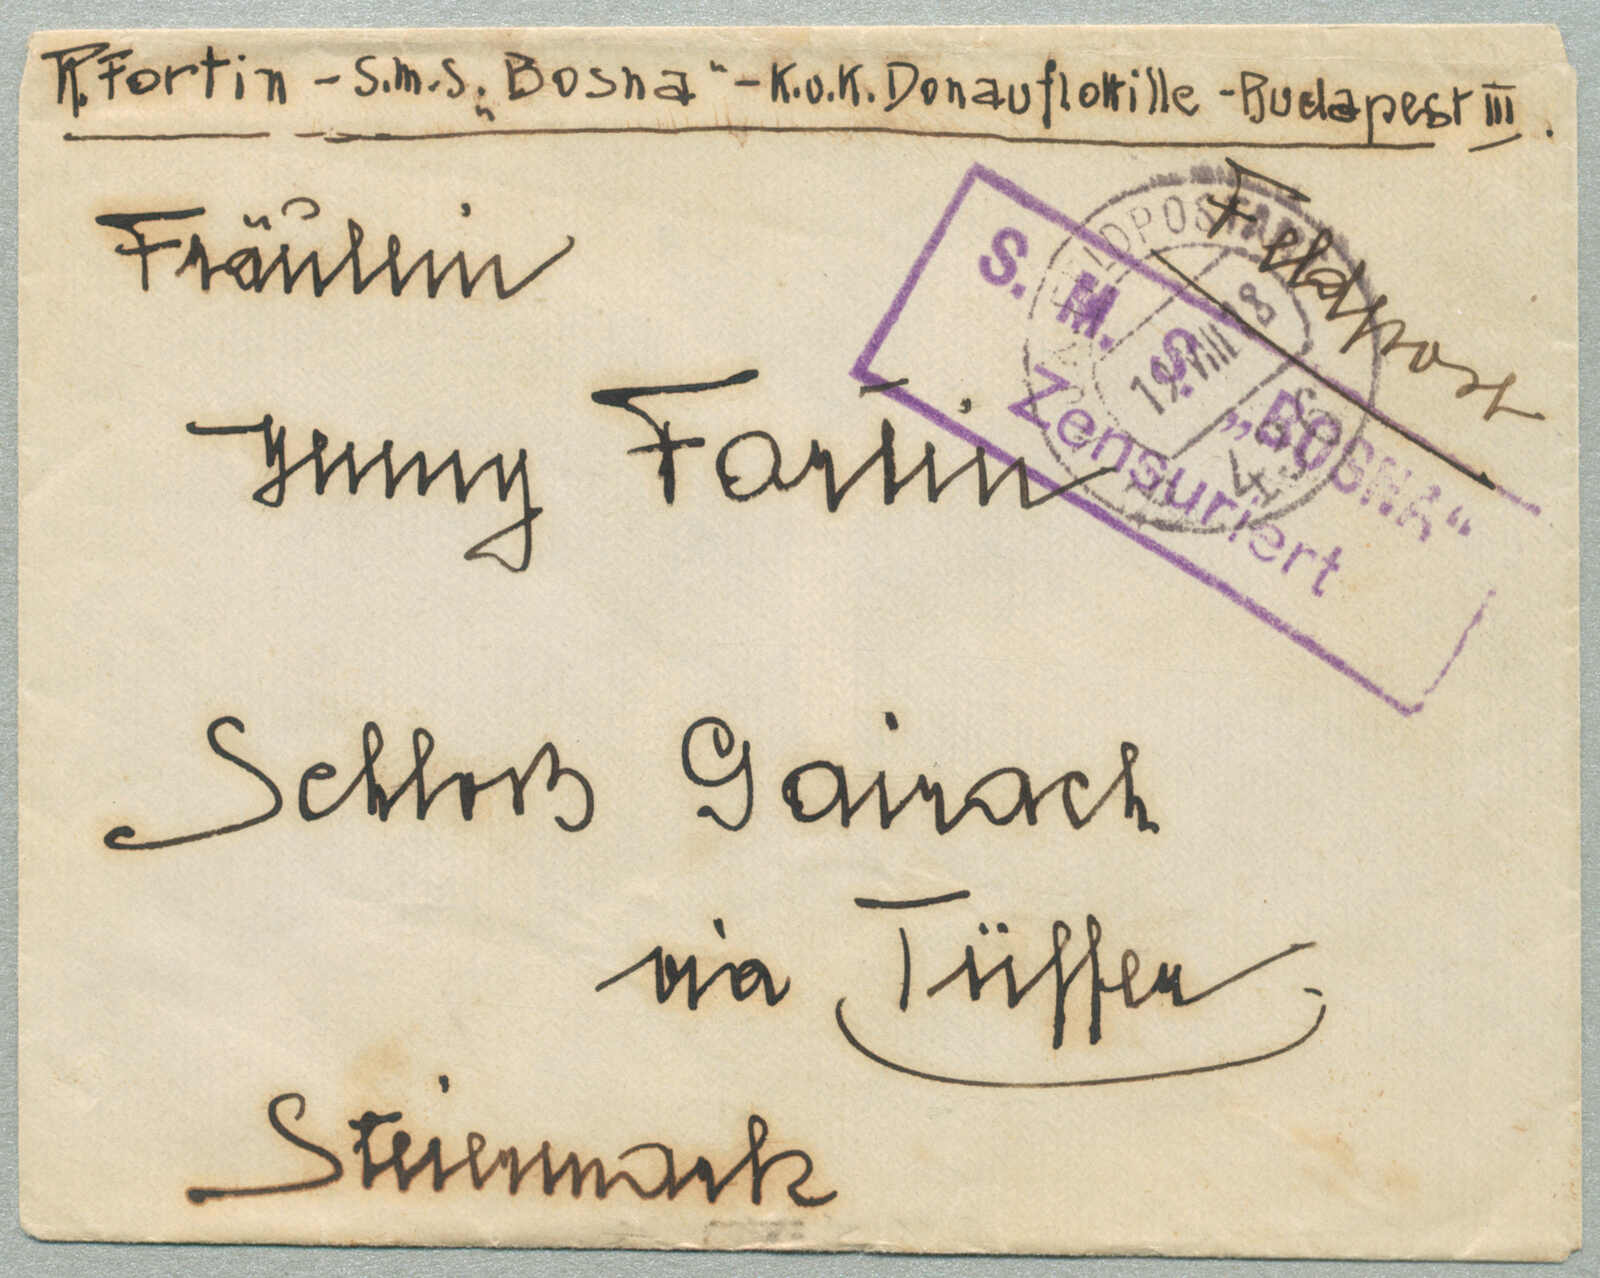 R. Fortin - S.M.S. „Bosna“ - K.u.K. Donauflottille - Budapest III.
Feldpost
Fräulein
Jenny Fortin
Schloß Gairach
via Tüffer
Steiermark
S. M. S. „BOSNA“
Zensuriert
FELDPOSTAMT
19. VIII 18